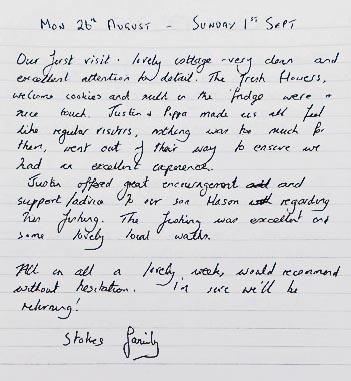 MON 26th AUGUST - SUNDAY 1ST SEPT
Our first visit. lovely cottage - very clean and
excellent attention to detail. The fresh flowers,
welcome cookies and milk in the fridge were a
nice touch. Justin & Pippa made us all feel
like regular visitors, nothing was too much for
them, went out of their way to ensure we
had an excellent experience.
Justin offered great encouragement and
support/advice to our son Mason regarding
his fishing. The fishing was excellent and
some lovely local walks.
All in all a lovely week, would recommend
without hesitation. I'm sure we'll be
returning!
Stokes family